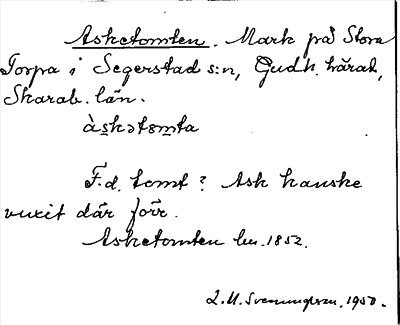 Asketomten. Mark på Stora
Torpa i Segerstad s:n, Gudh. härad,
Skarab. län.
àskətɵmta
F.d. tomt? Ask kanske
vuxit där förr.
Asketomten lm. 1852.
L.M. Svenungsson. 1950.